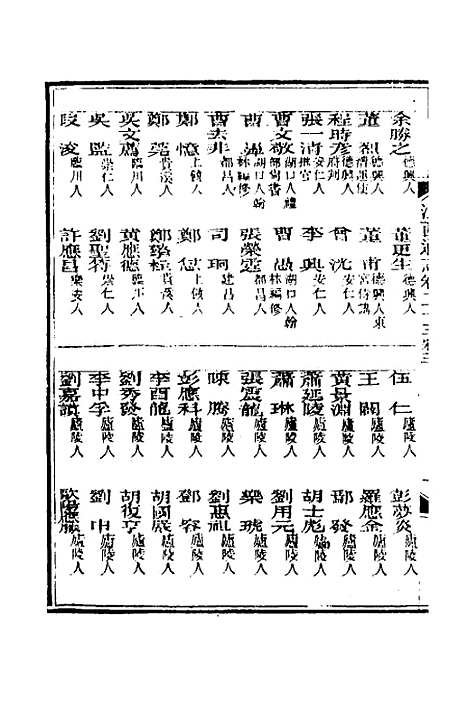 余勝之 德興人 董更生 德興人
董烈 德興人 董甫 德興人
程時彥 德興人 曾沈 安仁人
張一清 安仁人 李興 安仁人
曹文敬 湖口人 曹愚 湖口人翰林編修
曹 湖口人翰林編修 張榮霆 都昌人
曹去非 都昌人 司珂 建昌人
鄭憶 上饒人 鄭 上饒人
鄭 貴溪人 鄭 貴溪人
吳文 臨川人 黃應德 臨川人
吳監 崇仁人 劉聖 崇仁人
段浚 臨川人 許應昌 樂安人
江西通志卷二十
伍仁 廬陵人 彭炎 廬陵人
王閎 廬陵人 羅應金 廬陵人
黃景淵 廬陵人 鄧發 廬陵人
蕭延陵 廬陵人 胡士彪 廬陵人
蕭琳 廬陵人 劉用元 廬陵人
張震龍 廬陵人 梁琥 廬陵人
陳騰 廬陵人 劉惠祖 廬陵人
彭應科 廬陵人 鄧容 廬陵人
李酉龍 廬陵人 胡國辰 廬陵人
劉秀發 廬陵人 胡復亨 廬陵人
李中孚 廬陵人 劉申 廬陵人
劉嘉謨 廬陵人 歐陽應 廬陵人